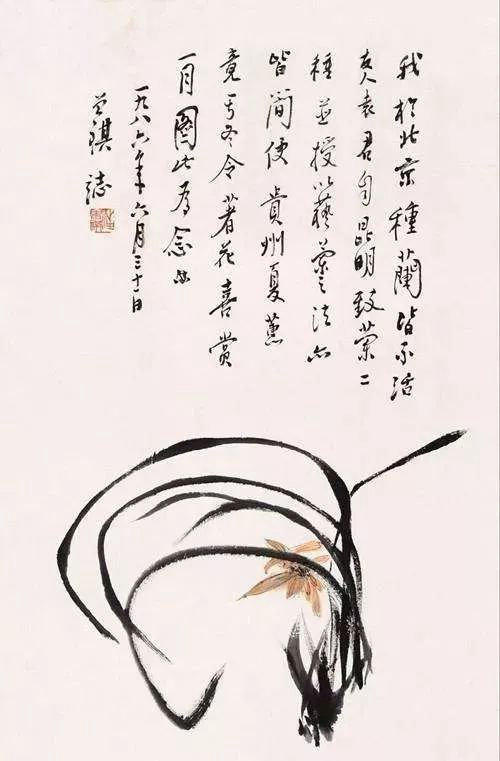 我於北京種蘭皆不活
友人袁君自昆明致蘭二
種並授以藝蘭之法亦
皆簡便貴州夏蕙
竟于冬令著花喜賞
一月圖此為念
一九八六年六月三十一日
曾祺誌